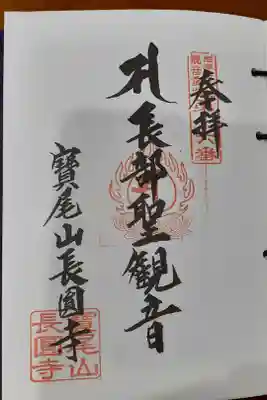 奉拝
札長部聖観音
寶尾山長圓寺
寶尾山
長圓寺